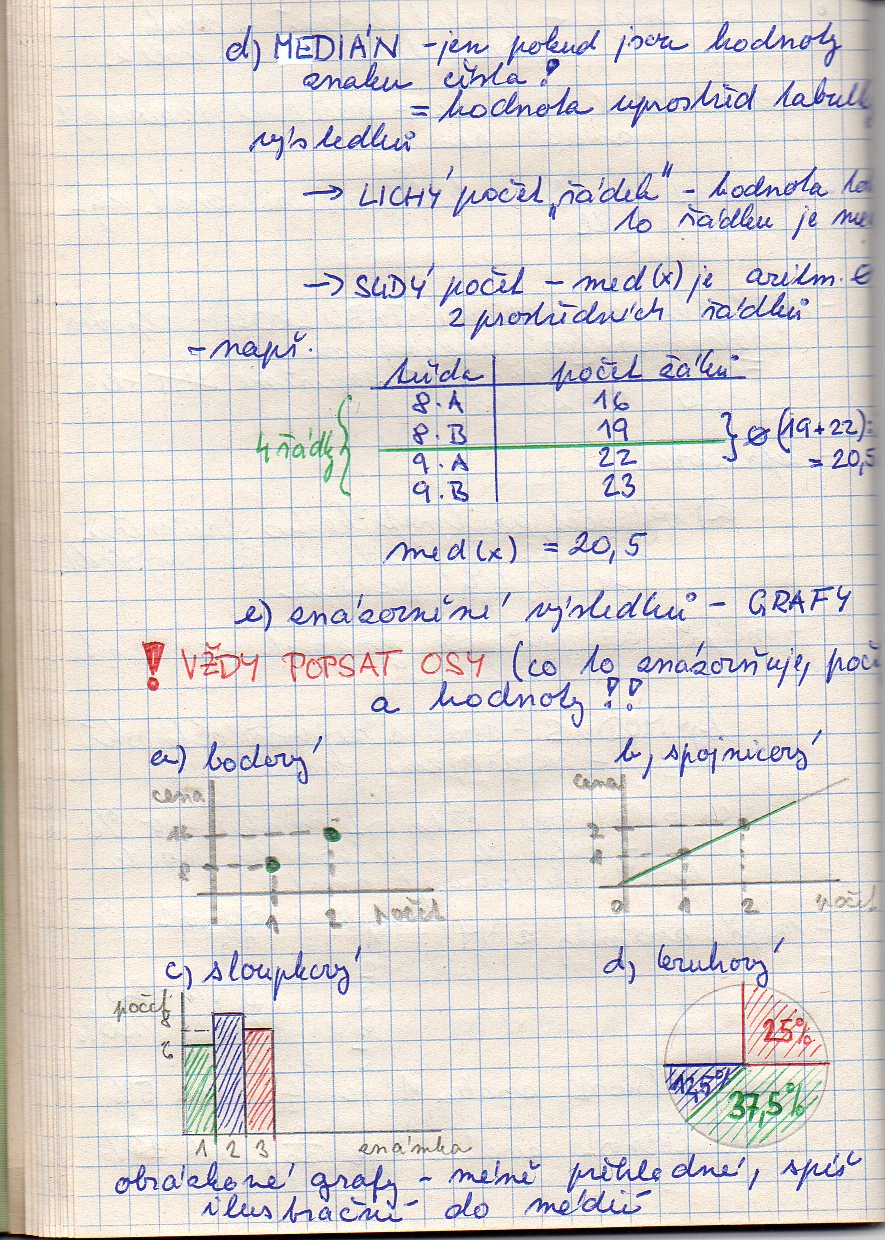 d) MEDIÁN - jen pokud jsou hodnoty
znaku čísla!
= hodnota uprostřed tabulky
výsledků
→ LICHÝ počet „řádek" - hodnota
to řádku je
→ SUDÝ počet - med(x) je aritm. ∅
2 prostředních řádků
- např.
třída počet žáků
8.A 16
8.B 19
9.A 22
9.B 23
4 řádky
∅ (19+22):
= 20,5
med(x) = 20,5
e) znázornění výsledků - GRAFY
! VŽDY POPSAT OSY (co to znázorňuje, poč
a hodnoty!!
a) bodový
b, spojnicový
cena
8
1 2 počet
cena
2
1
0 1 2 počet
c) sloupkový
d, kruhový
počet
8
6
1 2 3 známka
25%
12,5%
37,5%
obrázkové grafy - méně přehledné, spíš
ilustrační do médií